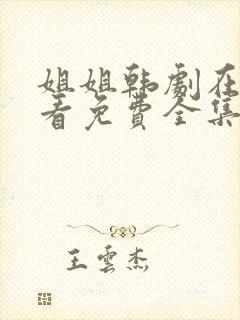 姐姐韩剧在
看免费全集
王雲杰